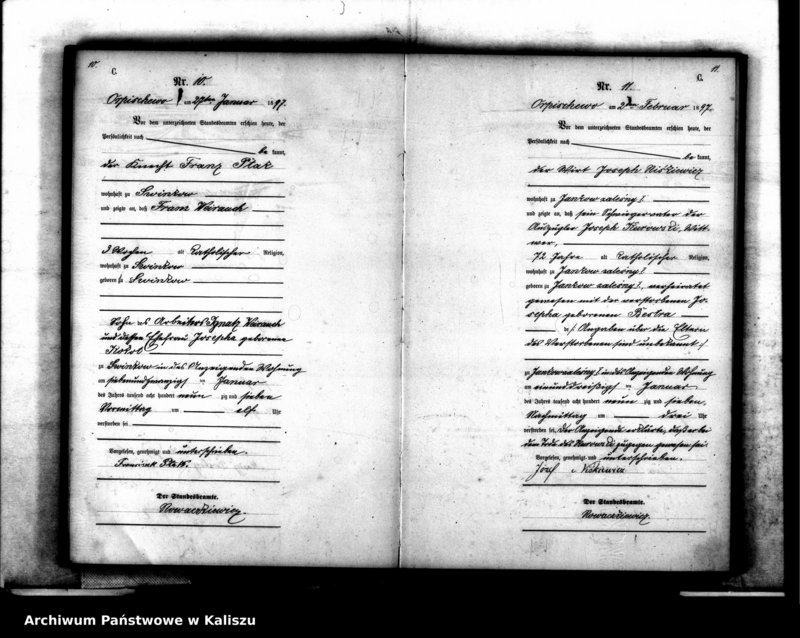 10.
C.
Nr. 10.
Orpischewo am 27ten Januar 1897.
Vor dem unterzeichneten Standesbeamten erschien heute, der
Persönlichkeit nach
be kannt,
der Knecht Franz Ptak
wohnhaft zu Swinkow
und zeigte an, daß Franz Weirauch
3 Wochen alt Katholischer Religion,
wohnhaft zu Swinkow
geboren zu Swinkow
Sohn des Arbeiters Ignatz Weirauch
und dessen Ehefrau Josepha geborenen
zu Swinkow in des Anzeigenden Wohnung
am siebenundzwanzigsten Januar
des Jahres tausend acht hundert neun zig und sieben
Vormittag um elf Uhr
verstorben sei.
Vorgelesen, genehmigt und unterschrieben.
Franciszek Ptak.
Der Standesbeamte.
Nowaczkiewicz.
11.
C.
Nr. 11.
Orpischewo am 2ten Februar 1897.
Vor dem unterzeichneten Standesbeamten erschien heute, der
Persönlichkeit nach
be kannt,
der Wirt Joseph
wohnhaft zu Jankow zalesny
und zeigte an, daß sein Schwiegervater der
Auszügler Joseph Kurowski, Witt-
wer,
72 Jahre alt Katholischer Religion,
wohnhaft zu Jankow zalesny
geboren zu Jankow zalesny, verheiratet
gewesen mit der verstorbenen Jo-
sepha geborenen
die Angaben über die Eltern
des Verstorbenen sind unbekannt
zu Jankow zalesny in des Anzeigenden Wohnung
am einunddreißigsten Januar
des Jahres tausend acht hundert neun zig und sieben
Nachmittag um drei Uhr
verstorben sei, Der Anzeigende erklärte, daß er bei
dem Tode des Kurowski zugegen gewesen sei.
Vorgelesen, genehmigt und unterschrieben.
Józef
Der Standesbeamte.
Nowaczkiewicz.
Archiwum Państwowe w Kaliszu